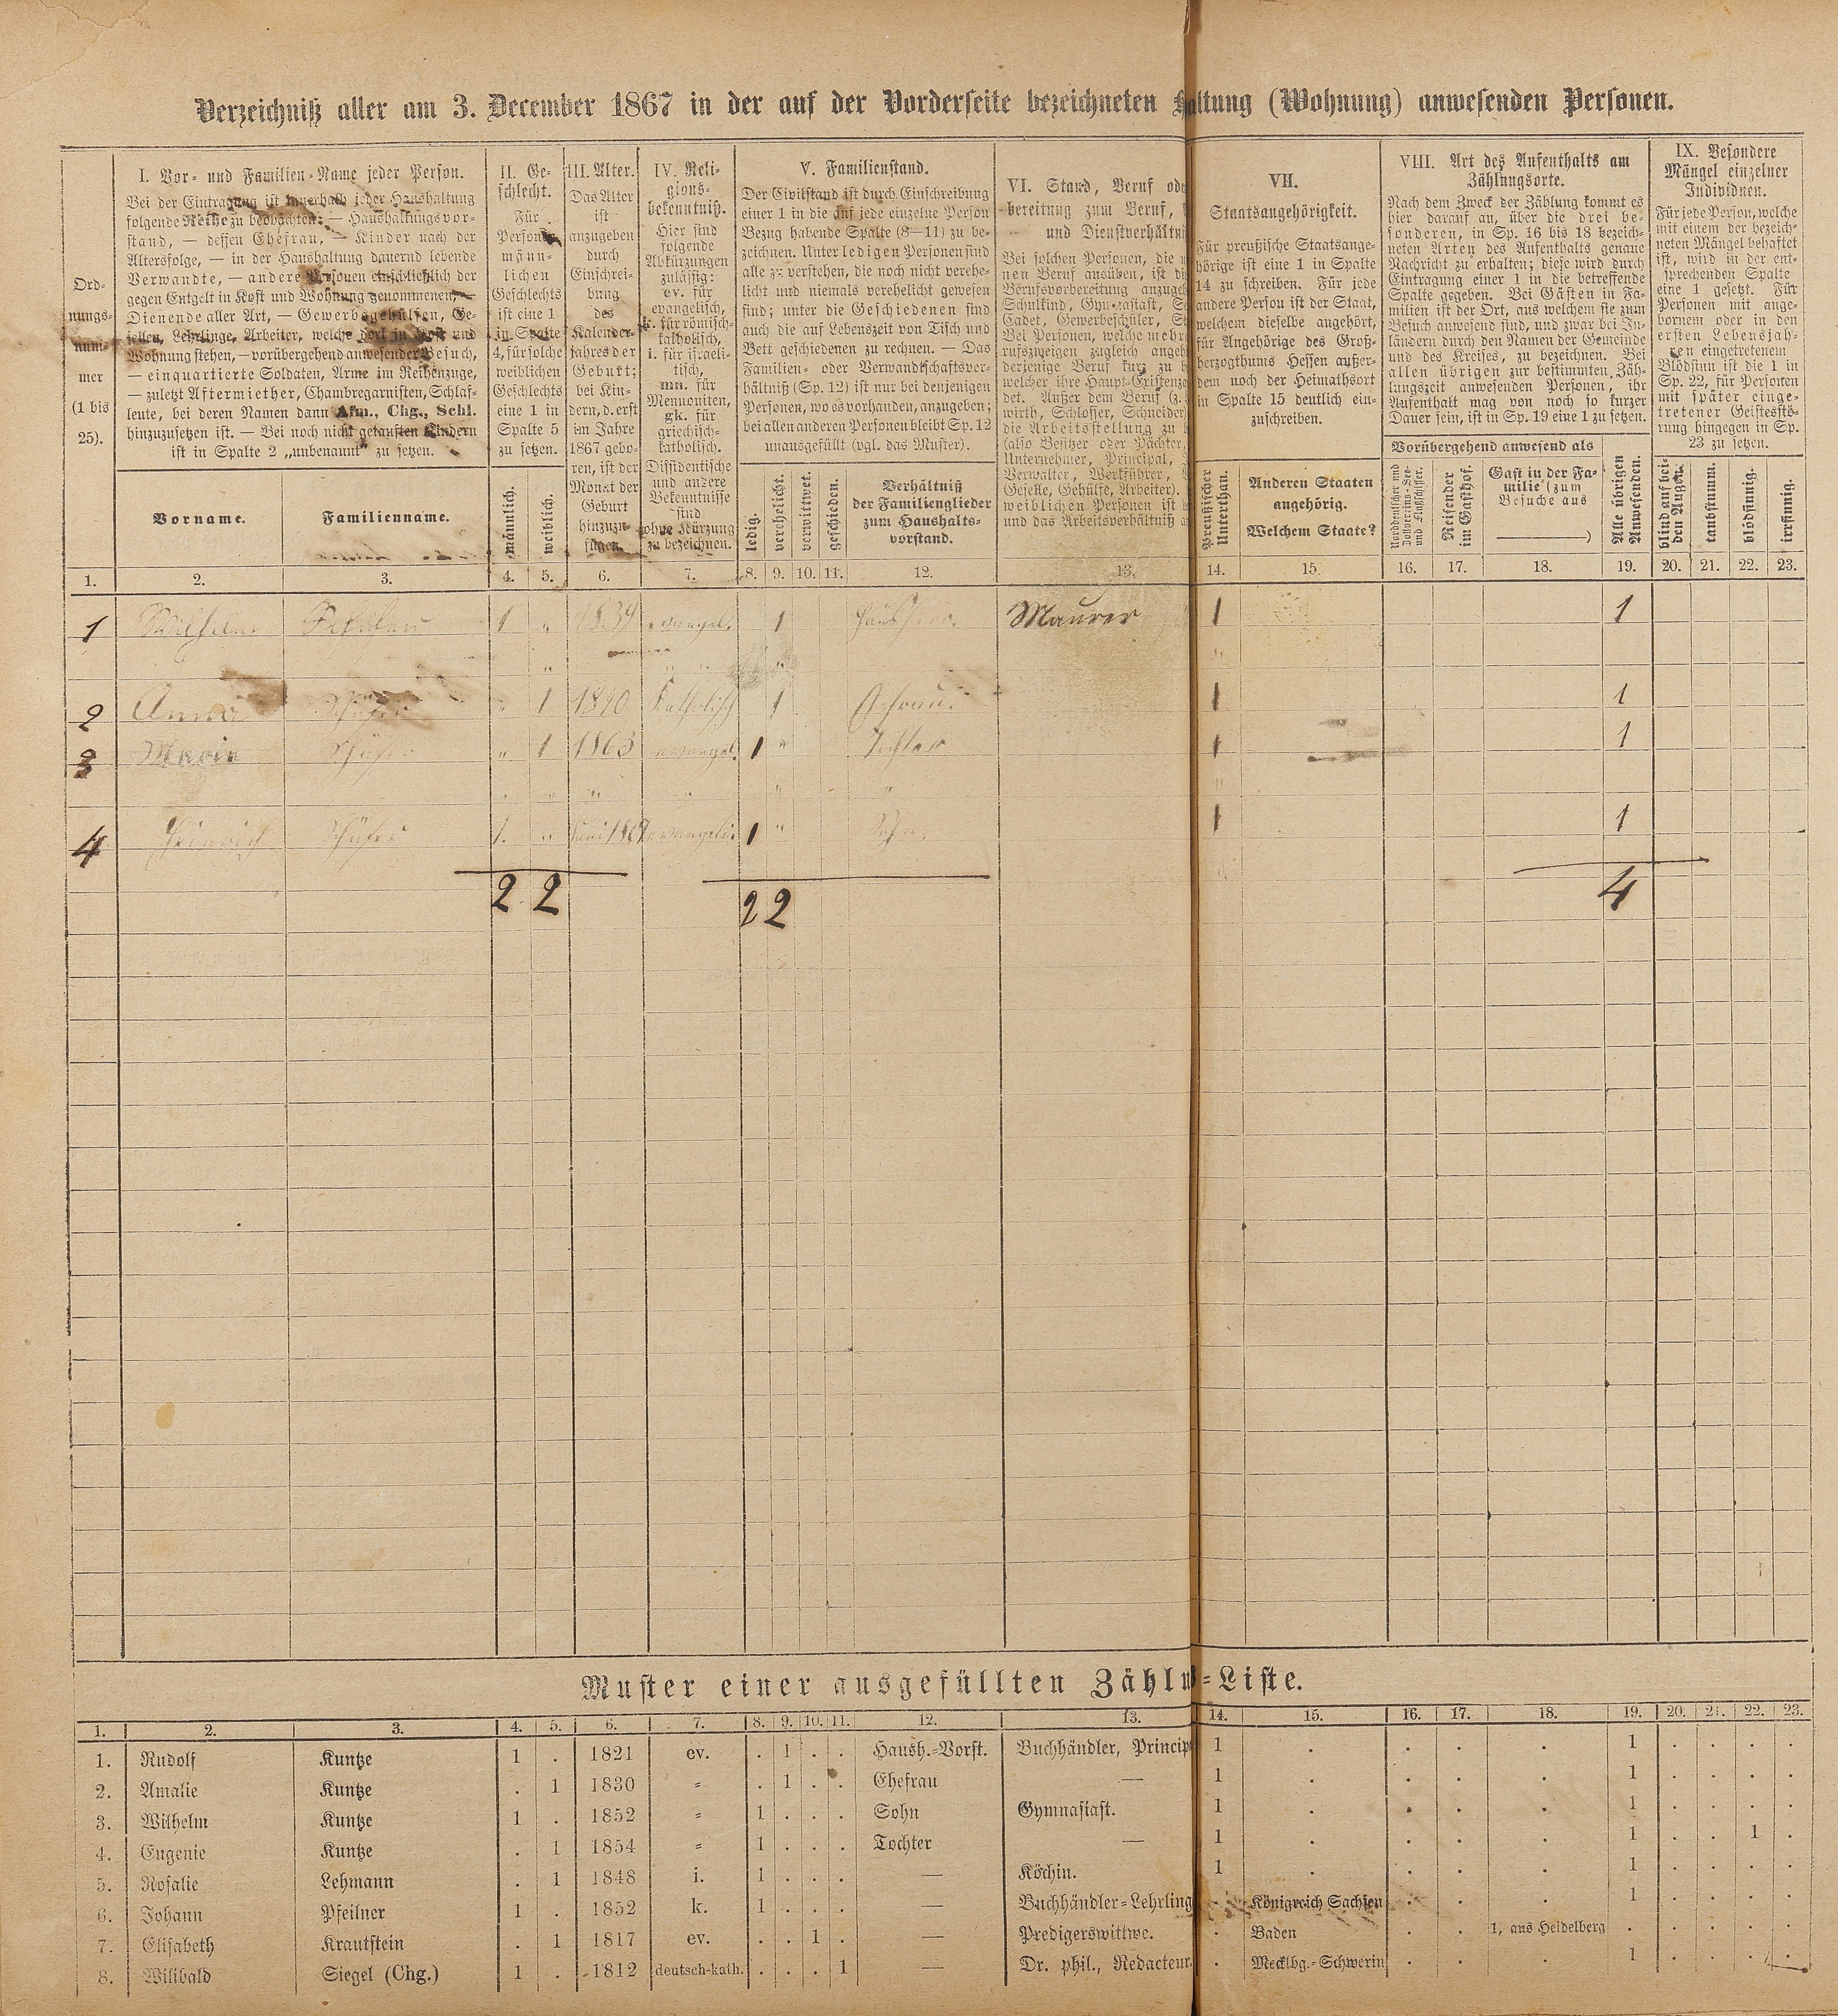 Verzeichniß aller am 3. December 1867 in der auf der Vorderseite bezeichneten Haltung (Wohnung) anwesenden Personen.
Ord-
nungs-
num-
mer
(1 bis
25).
I. Vor- und Familien-Name jeder Person.
Bei der Eintragung ist innerhalb jeder Haushaltung
folgende Reihe zu beobachten: — Haushaltungsvor-
stand, — dessen Ehefrau, — Kinder nach der
Altersfolge, — in der Haushaltung dauernd lebende
Verwandte, — andere Personen einschließlich der
gegen Entgelt in Kost und Wohnung genommenen, —
Dienende aller Art, — Gewerbsgehülfen, Ge-
sellen, Lehrlinge, Arbeiter, welche dort in Kost und
Wohnung stehen, — vorübergehend anwesender Besuch,
— einquartierte Soldaten, Arme im Reihenzuge,
— zuletzt Aftermiether, Chambregarnisten, Schlaf-
leute, bei deren Namen dann Afm., Chg., Schl.
hinzuzusetzen ist. — Bei noch nicht getauften Kindern
ist in Spalte 2 „unbenannt" zu setzen.
Vorname.
Familienname.
II. Ge-
schlecht.
Für
Personen
männ-
lichen
Geschlechts
ist eine 1
in Spalte
4, für solche
weiblichen
Geschlechts
eine 1 in
Spalte 5
zu setzen.
männlich.
weiblich.
III. Alter.
Das Alter
ist
anzugeben
durch
Einschrei-
bung
des
Kalender-
jahres der
Geburt;
bei Kin-
dern, d. erst
im Jahre
1867 gebo-
ren, ist der
Monat der
Geburt
hinzuzu-
fügen.
IV. Reli-
gions-
bekenntniß.
Hier sind
folgende
Abkürzungen
zulässig:
ev. für
evangelisch,
k. für römisch-
katholisch,
i. für israeli-
tisch,
mn. für
Mennoniten,
gk. für
griechisch-
katholisch.
Dissidentische
und andere
Bekenntnisse
sind
ohne Kürzung
zu bezeichnen.
V. Familienstand.
Der Civilstand ist durch Einschreibung
einer 1 in die auf jede einzelne Person
Bezug habende Spalte (8—11) zu be-
zeichnen. Unter ledigen Personen sind
alle zu verstehen, die noch nicht verehe-
licht und niemals verehelicht gewesen
sind; unter die Geschiedenen sind
auch die auf Lebenszeit von Tisch und
Bett geschiedenen zu rechnen. — Das
Familien- oder Verwandtschaftsver-
hältniß (Sp. 12) ist nur bei denjenigen
Personen, wo es vorhanden, anzugeben;
bei allen anderen Personen bleibt Sp. 12
unausgefüllt (vgl. das Muster).
ledig.
verehelicht.
verwittwet.
geschieden.
Verhältniß
der Familienglieder
zum Haushalts-
vorstand.
VI. Stand, Beruf ode
bereitung zum Beruf,
und Dienstverhältni
Bei solchen Personen, die
nen Beruf ausüben, ist di
Berufsvorbereitung anzugeb
Schulkind, Gymnasiast, S
Cadet, Gewerbeschüler, S
Bei Personen, welche mehr
rufszweigen zugleich angeh
derjenige Beruf kurz zu b
welcher ihre Haupt-Existenz
det. Außer dem Beruf (z.
wirth, Schlosser, Schneider)
die Arbeitsstellung zu
(also Besitzer oder Pächter,
Unternehmer, Principal,
Verwalter, Werkführer,
Geselle, Gehülfe, Arbeiter).
weiblichen Personen ist
und das Arbeitsverhältniß
VII.
Staatsangehörigkeit.
Für preußische Staatsange-
hörige ist eine 1 in Spalte
14 zu schreiben. Für jede
andere Person ist der Staat,
welchem dieselbe angehört,
für Angehörige des Groß-
herzogthums Hessen außer-
dem noch der Heimathsort
in Spalte 15 deutlich ein-
zuschreiben.
Preußischer
Unterthan.
Anderen Staaten
angehörig.
Welchem Staate?
VIII. Art des Aufenthalts am
Zählungsorte.
Nach dem Zweck der Zählung kommt es
hier darauf an, über die drei be-
sonderen, in Sp. 16 bis 18 bezeich-
neten Arten des Aufenthalts genaue
Nachricht zu erhalten; diese wird durch
Eintragung einer 1 in die betreffende
Spalte gegeben. Bei Gästen in Fa-
milien ist der Ort, aus welchem sie zum
Besuch anwesend sind, und zwar bei In-
ländern durch den Namen der Gemeinde
und des Kreises, zu bezeichnen. Bei
allen übrigen zur bestimmten Zäh-
lungszeit anwesenden Personen, ihr
Aufenthalt mag von noch so kurzer
Dauer sein, ist in Sp. 19 eine 1 zu setzen.
Vorübergehend anwesend als
Norddeutscher und
Zollvereins-See-
und Flußschiffer.
Reisender
im Gasthof.
Gast in der Fa-
milie (zum
Besuche aus
)
Alle übrigen
Anwesenden.
IX. Besondere
Mängel einzelner
Individuen.
Für jede Person, welche
mit einem der bezeich-
neten Mängel behaftet
ist, wird in der ent-
sprechenden Spalte
eine 1 gesetzt. Für
Personen mit ange-
bornem oder in den
ersten Lebensjah-
ren eingetretenem
Blödsinn ist die 1 in
Sp. 22, für Personen
mit später einge-
tretener Geistesstö-
rung hingegen in Sp.
23 zu setzen.
blind auf bei-
den Augen.
taubstumm.
blödsinnig.
irrsinnig.
1. 2. 3. 4. 5. 6. 7. 8. 9. 10. 11. 12. 13. 14. 15. 16. 17. 18. 19. 20. 21. 22. 23.
1 Wilhelm 1 „ 1839 evangel. 1 Maurer 1 1
2 Anna „ 1 1840 Katholisch 1 1 1
3 Maria Schäfer „ 1 1863 evangel. 1 „ Tochter 1 1
4 Heinrich Schäfer 1. „ Juni 1867 evangelis 1 „ Sohn. 1 1
2 2 2 2 4
Muster einer ausgefüllten Zählu=Liste.
1. 2. 3. 4. 5. 6. 7. 8. 9. 10. 11. 12. 13. 14. 15. 16. 17. 18. 19. 20. 21. 22. 23.
1. Rudolf Kuntze 1 . 1821 ev. . 1 . . Haush.=Vorst. Buchhändler, Princip 1 . . . . 1 . . . .
2. Amalie Kuntze . 1 1830 = . 1 . . Ehefrau — 1 . . . . 1 . . . .
3. Wilhelm Kuntze 1 . 1852 = 1 . . . Sohn Gymnasiast. 1 . . . . 1 . . . .
4. Eugenie Kuntze . 1 1854 = 1 . . . Tochter — 1 . . . . 1 . . 1 .
5. Rosalie Lehmann . 1 1848 i. 1 . . . — Köchin. 1 . . . . 1 . . . .
6. Johann Pfeilner 1 . 1852 k. 1 . . . — Buchhändler=Lehrling . Königreich Sachsen . . . 1 . . . .
7. Elisabeth Krautstein . 1 1817 ev. . . 1 . — Predigerswittwe. . Baden . . 1, aus Heidelberg . . . . .
8. Wilibald Siegel (Chg.) 1 . 1812 deutsch-kath. . . . 1 — Dr. phil., Redacteur. . Mecklbg.=Schwerin . . . 1 . . . .